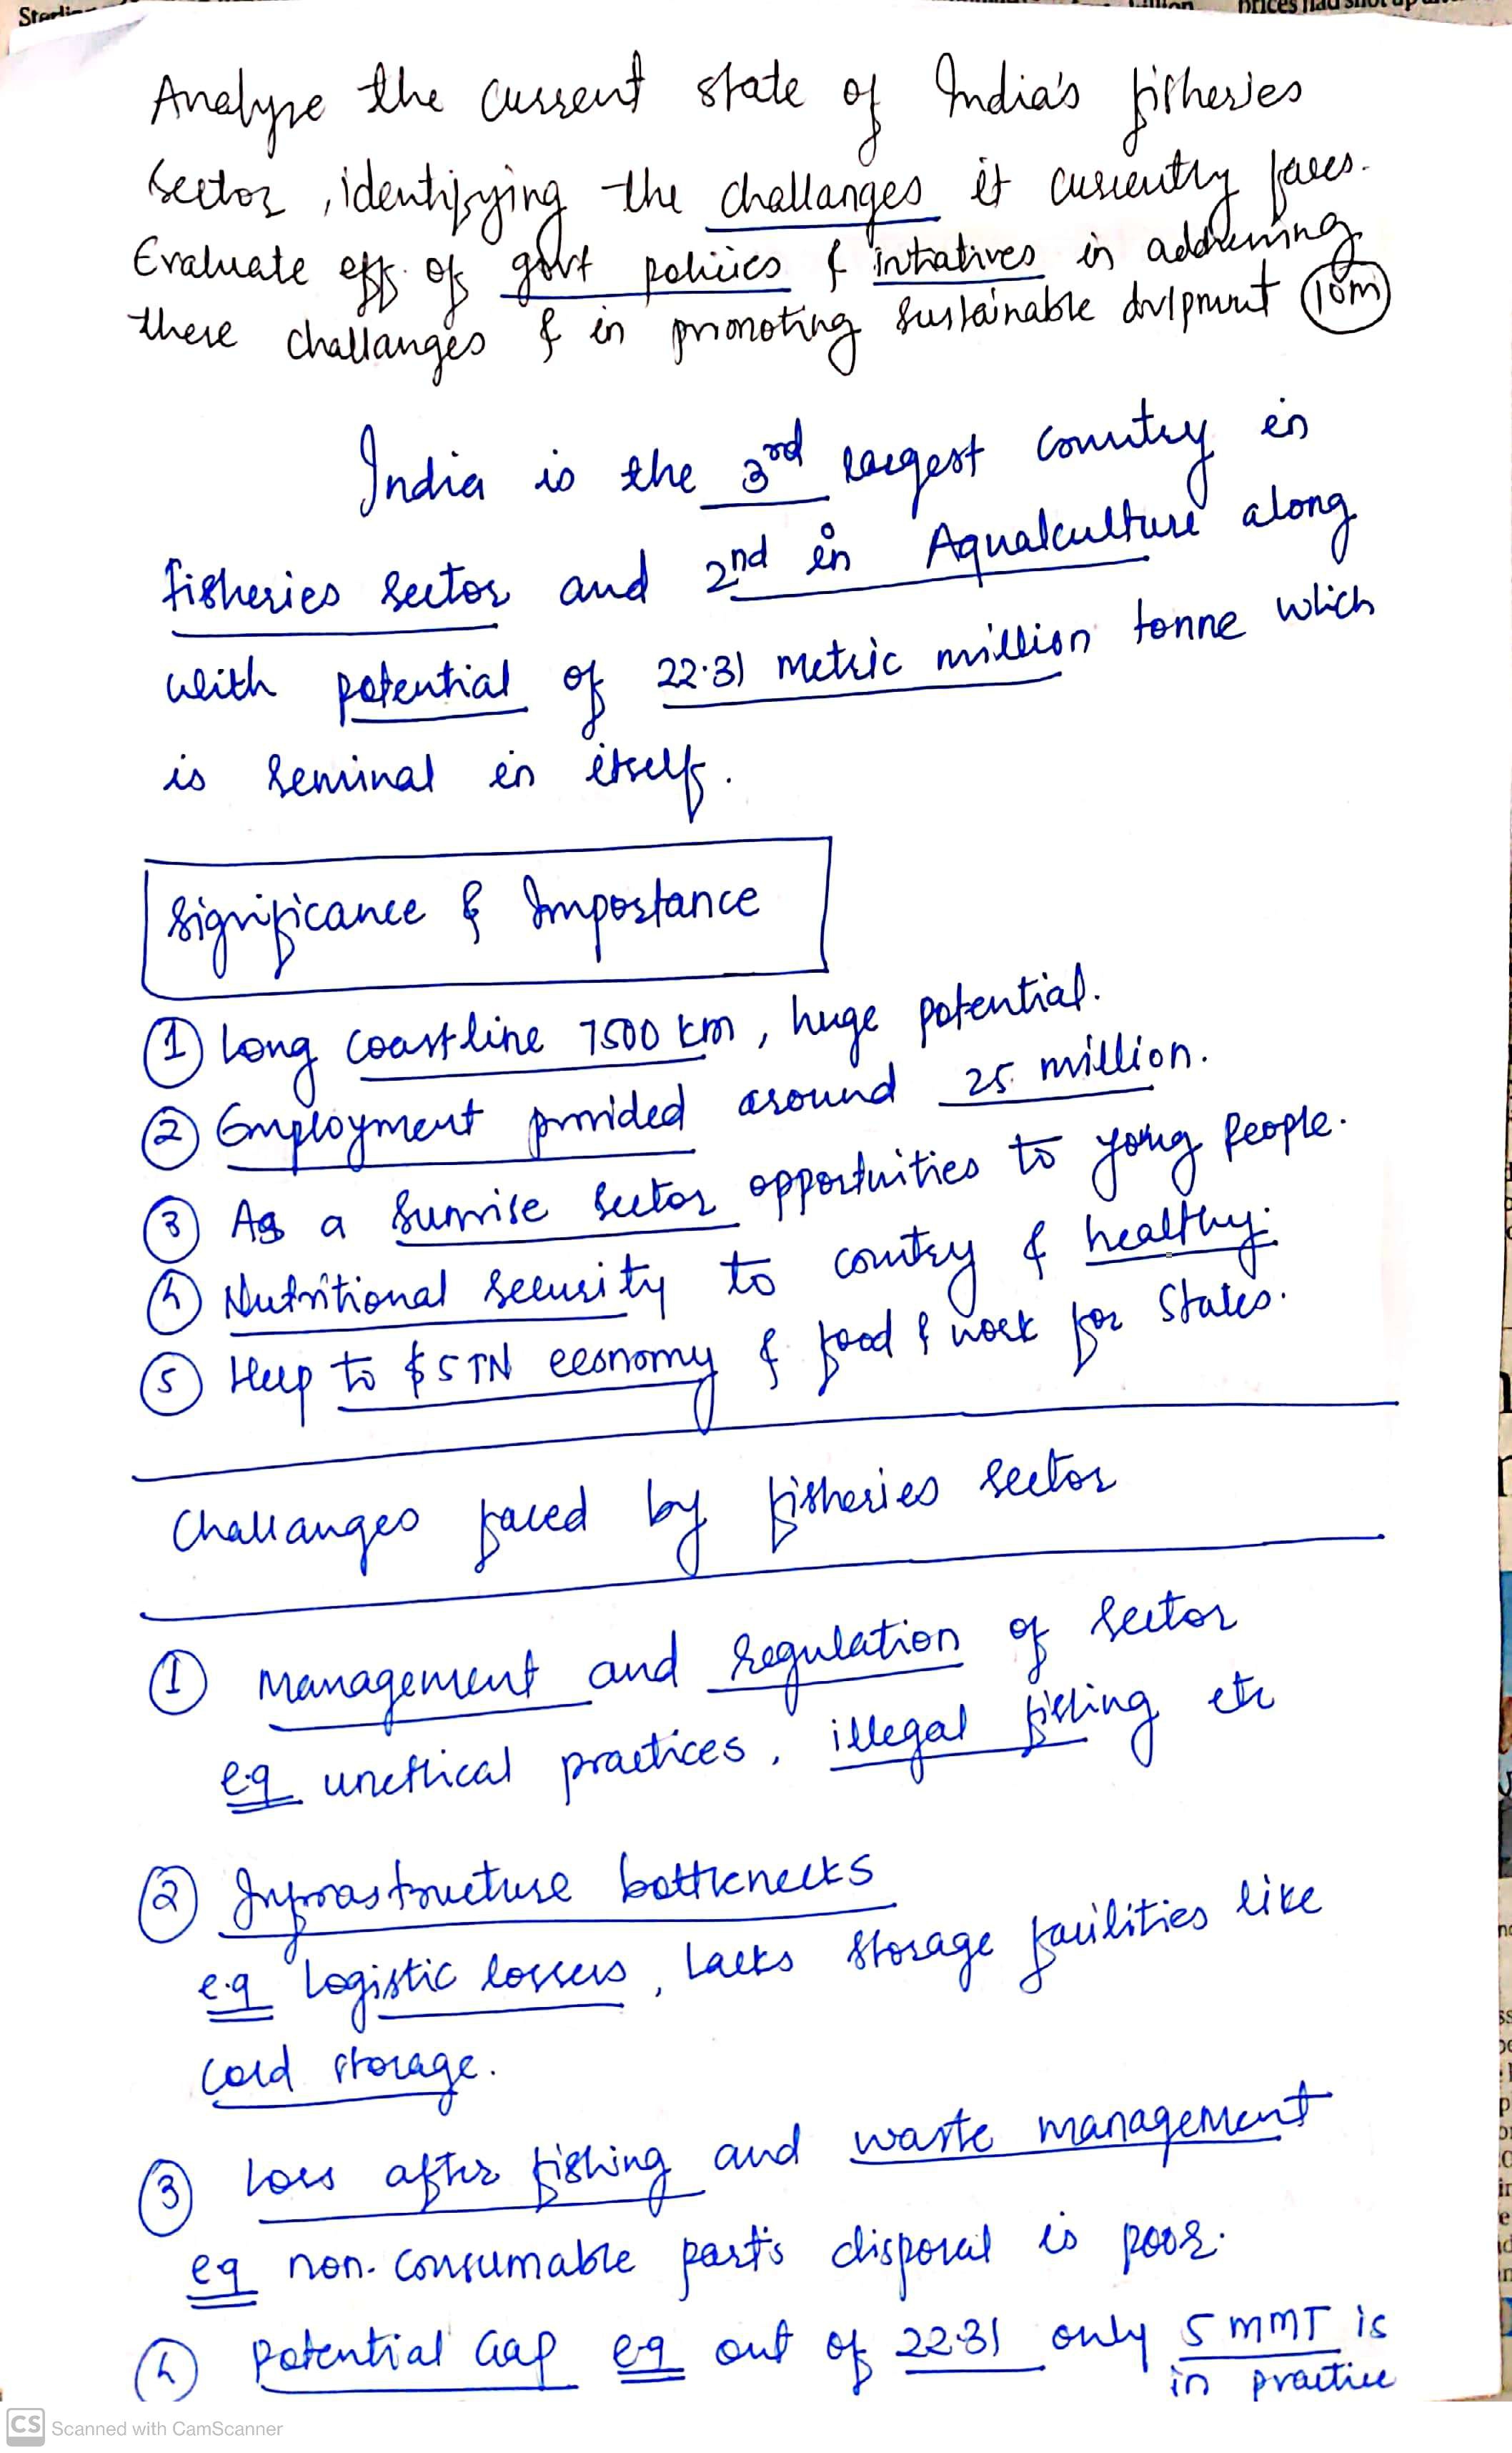 Analyse the current state of India's fisheries
sector, identifying the challanges it currently faces.
Evaluate eff. of govt policies & intiatives in addressing
these challanges & in promoting sustainable dvlpment (10m)
India is the 3rd largest country in
fisheries sector and 2nd in Aqualculture along
with potential of 22.31 metric million tonne which
is seminal in itself.
Significance & Importance
① Long coastline 7500 km, huge potential.
② Employment provided around 25 million.
③ As a sunrise sector opportuities to young people.
④ Nutritional security to country & healthy.
⑤ Help to $5TN economy & food & work for states.
Challanges faced by fisheries sector
① Management and regulation of sector
e.g unethical practices, illegal fishing etc
② Infrastructure bottlenecks
e.g logistic losses, lacks storage facilities like
cold storage.
③ Loss after fishing and waste management
eg non-consumable parts disposal is poor.
④ Potential Gap eg out of 22.31 only 5 MMT is
in practice
CS Scanned with CamScanner